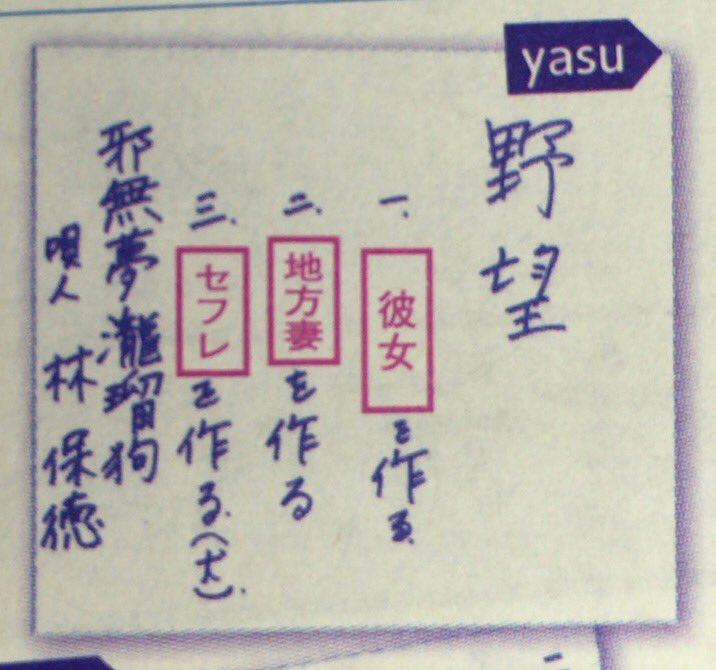 yasu
野望
一、彼女を作る
二、地方妻を作る
三、セフレを作る(犬).
邪無夢瀧瑠狗
唄人 林保徳